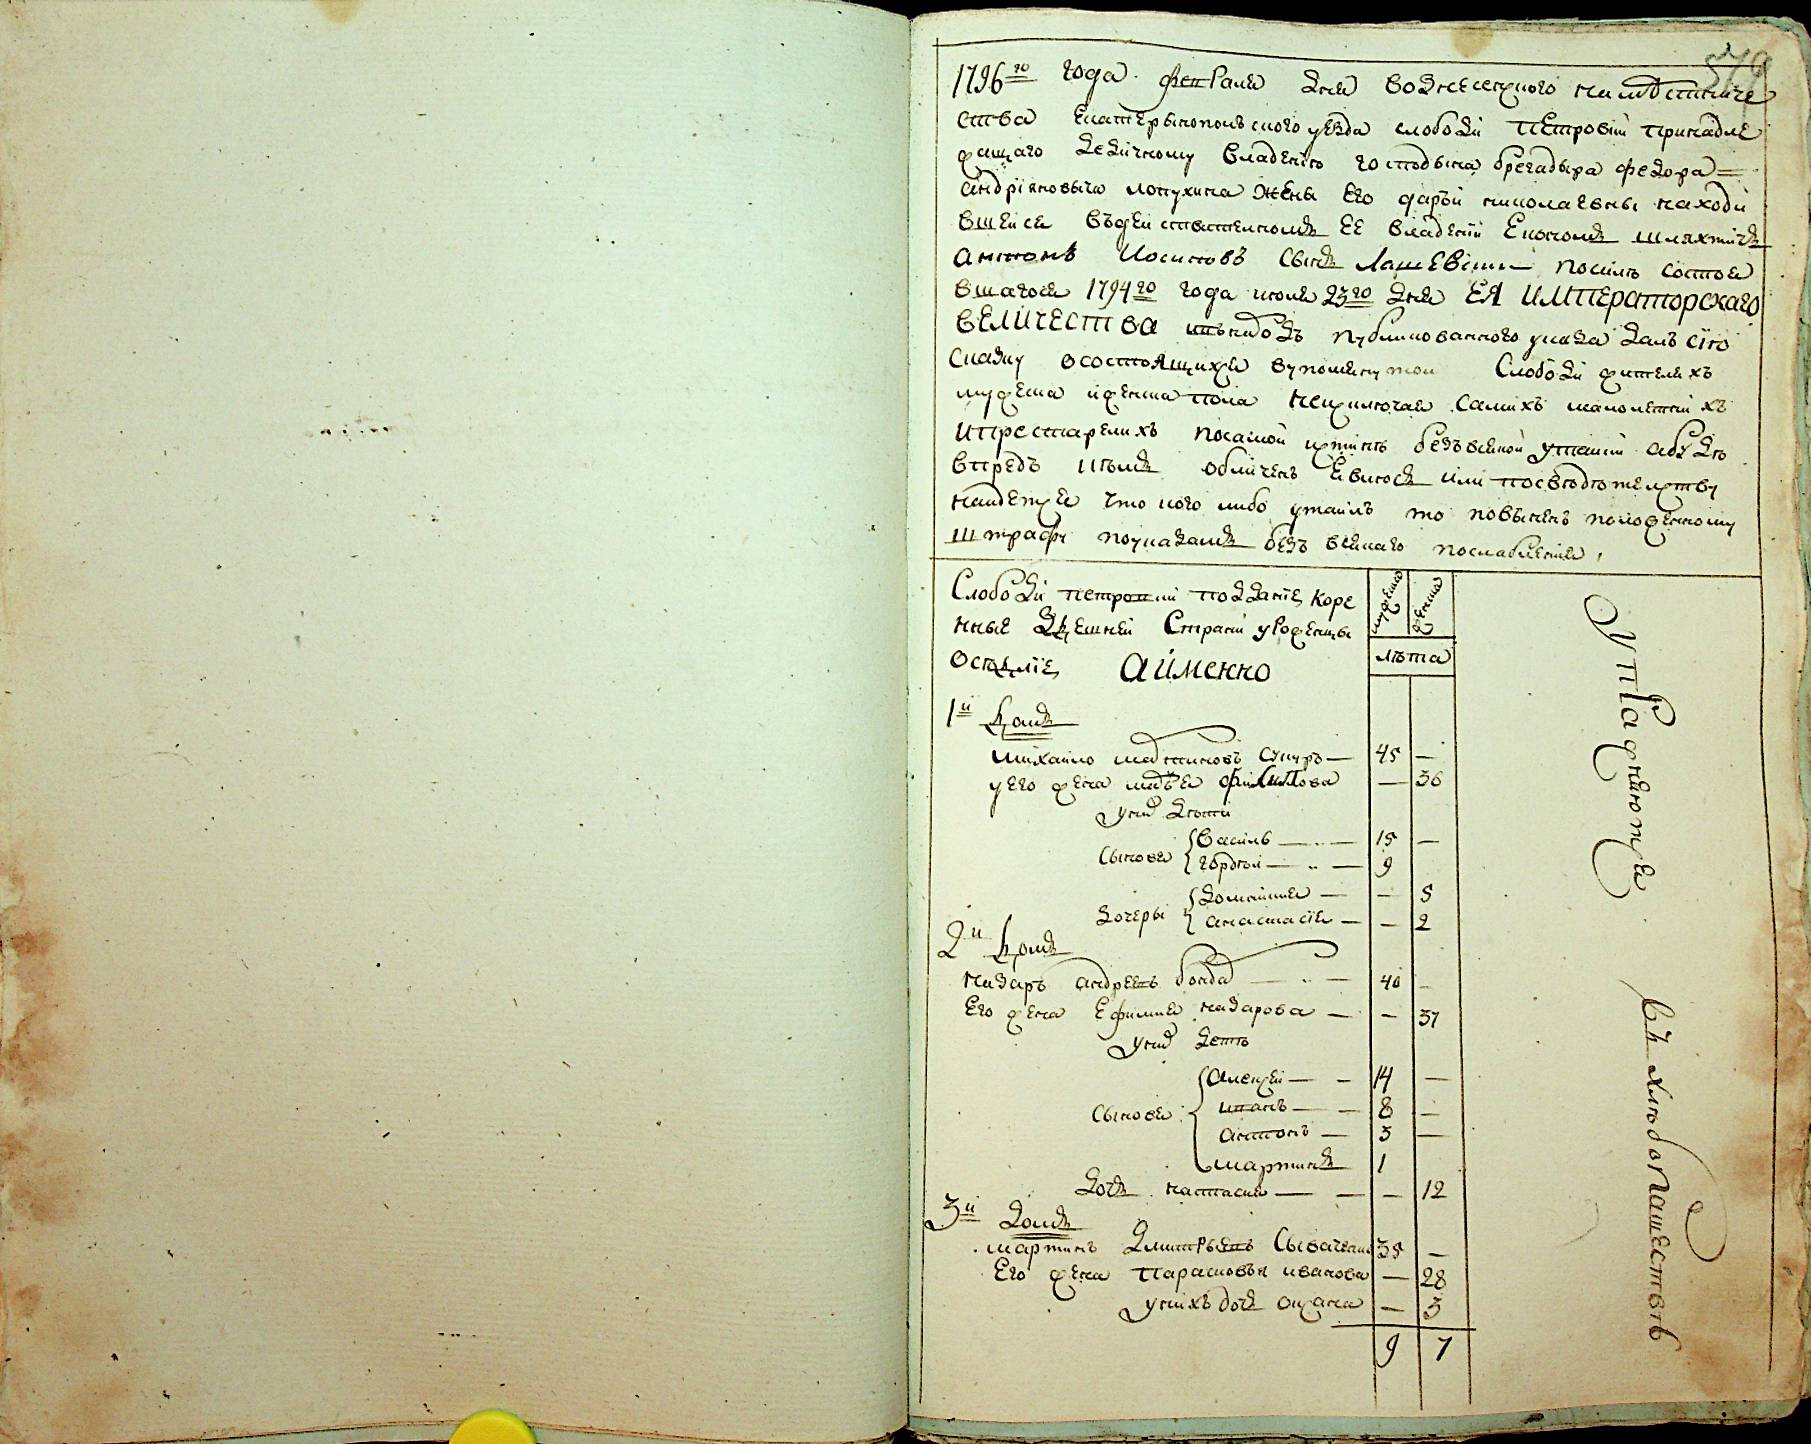 579
1796го года февраля дня вознесенского наместниче
ства екатеринополского уезда слободы Петровки принадле
жащаго дедичному владению господина брегадыра Федора
андрияновыча лопухина жены его дарьи николаевны находи
вшейся въдействителномъ ее владении Економъ шляхтичъ
антонъ Иосиповъ сынъ посилъ состоя
вшагося 1794го года июня 23го дня ЕЯ ИМПЕРАТОРСКАГО
ВЕЛИЧЕСТВА изънародъ публикованного указа далъ сию
сказку осостоящихся вупомянутои Слободы жителяхъ
мужеска иженска пола неиключая самихъ малолетнихъ
ипрестарелихъ посамой истине безъвсякой утайки абуде
впредъ икемъ обличенъ явлюсь или посвидетелству
найдется что кого либо утаилъ то повиненъ положенному
штрафу поуказамъ безъ всякаго послабления,
Слободы петровки подданіе коре
нные здешней Страни уроженцы
оседліе аименно
мужеска
женска
лета
1й домъ
михайло мартиновъ — 45 —
уего жена мавра филипова — 36
унихъ дети
Синовя Василь — 15 —
гордей — 9
дочеры — — 5
анастасія — — 2
2й домъ
назаръ андреевъ бонда — 40 —
Его жена Ефимия назарова — — 37
унихъ дети
Сынове Алексей — 14 —
иванъ — 8 —
антонъ — 3 —
мартинъ 1
дочь настасия — — 12
3й домъ
мартинъ Дмитрыевъ 35 —
Его жена Парасковья иванова — 28
унихъ дочь оксана — 3
9 7
Упражняются
въ хлебопашестве